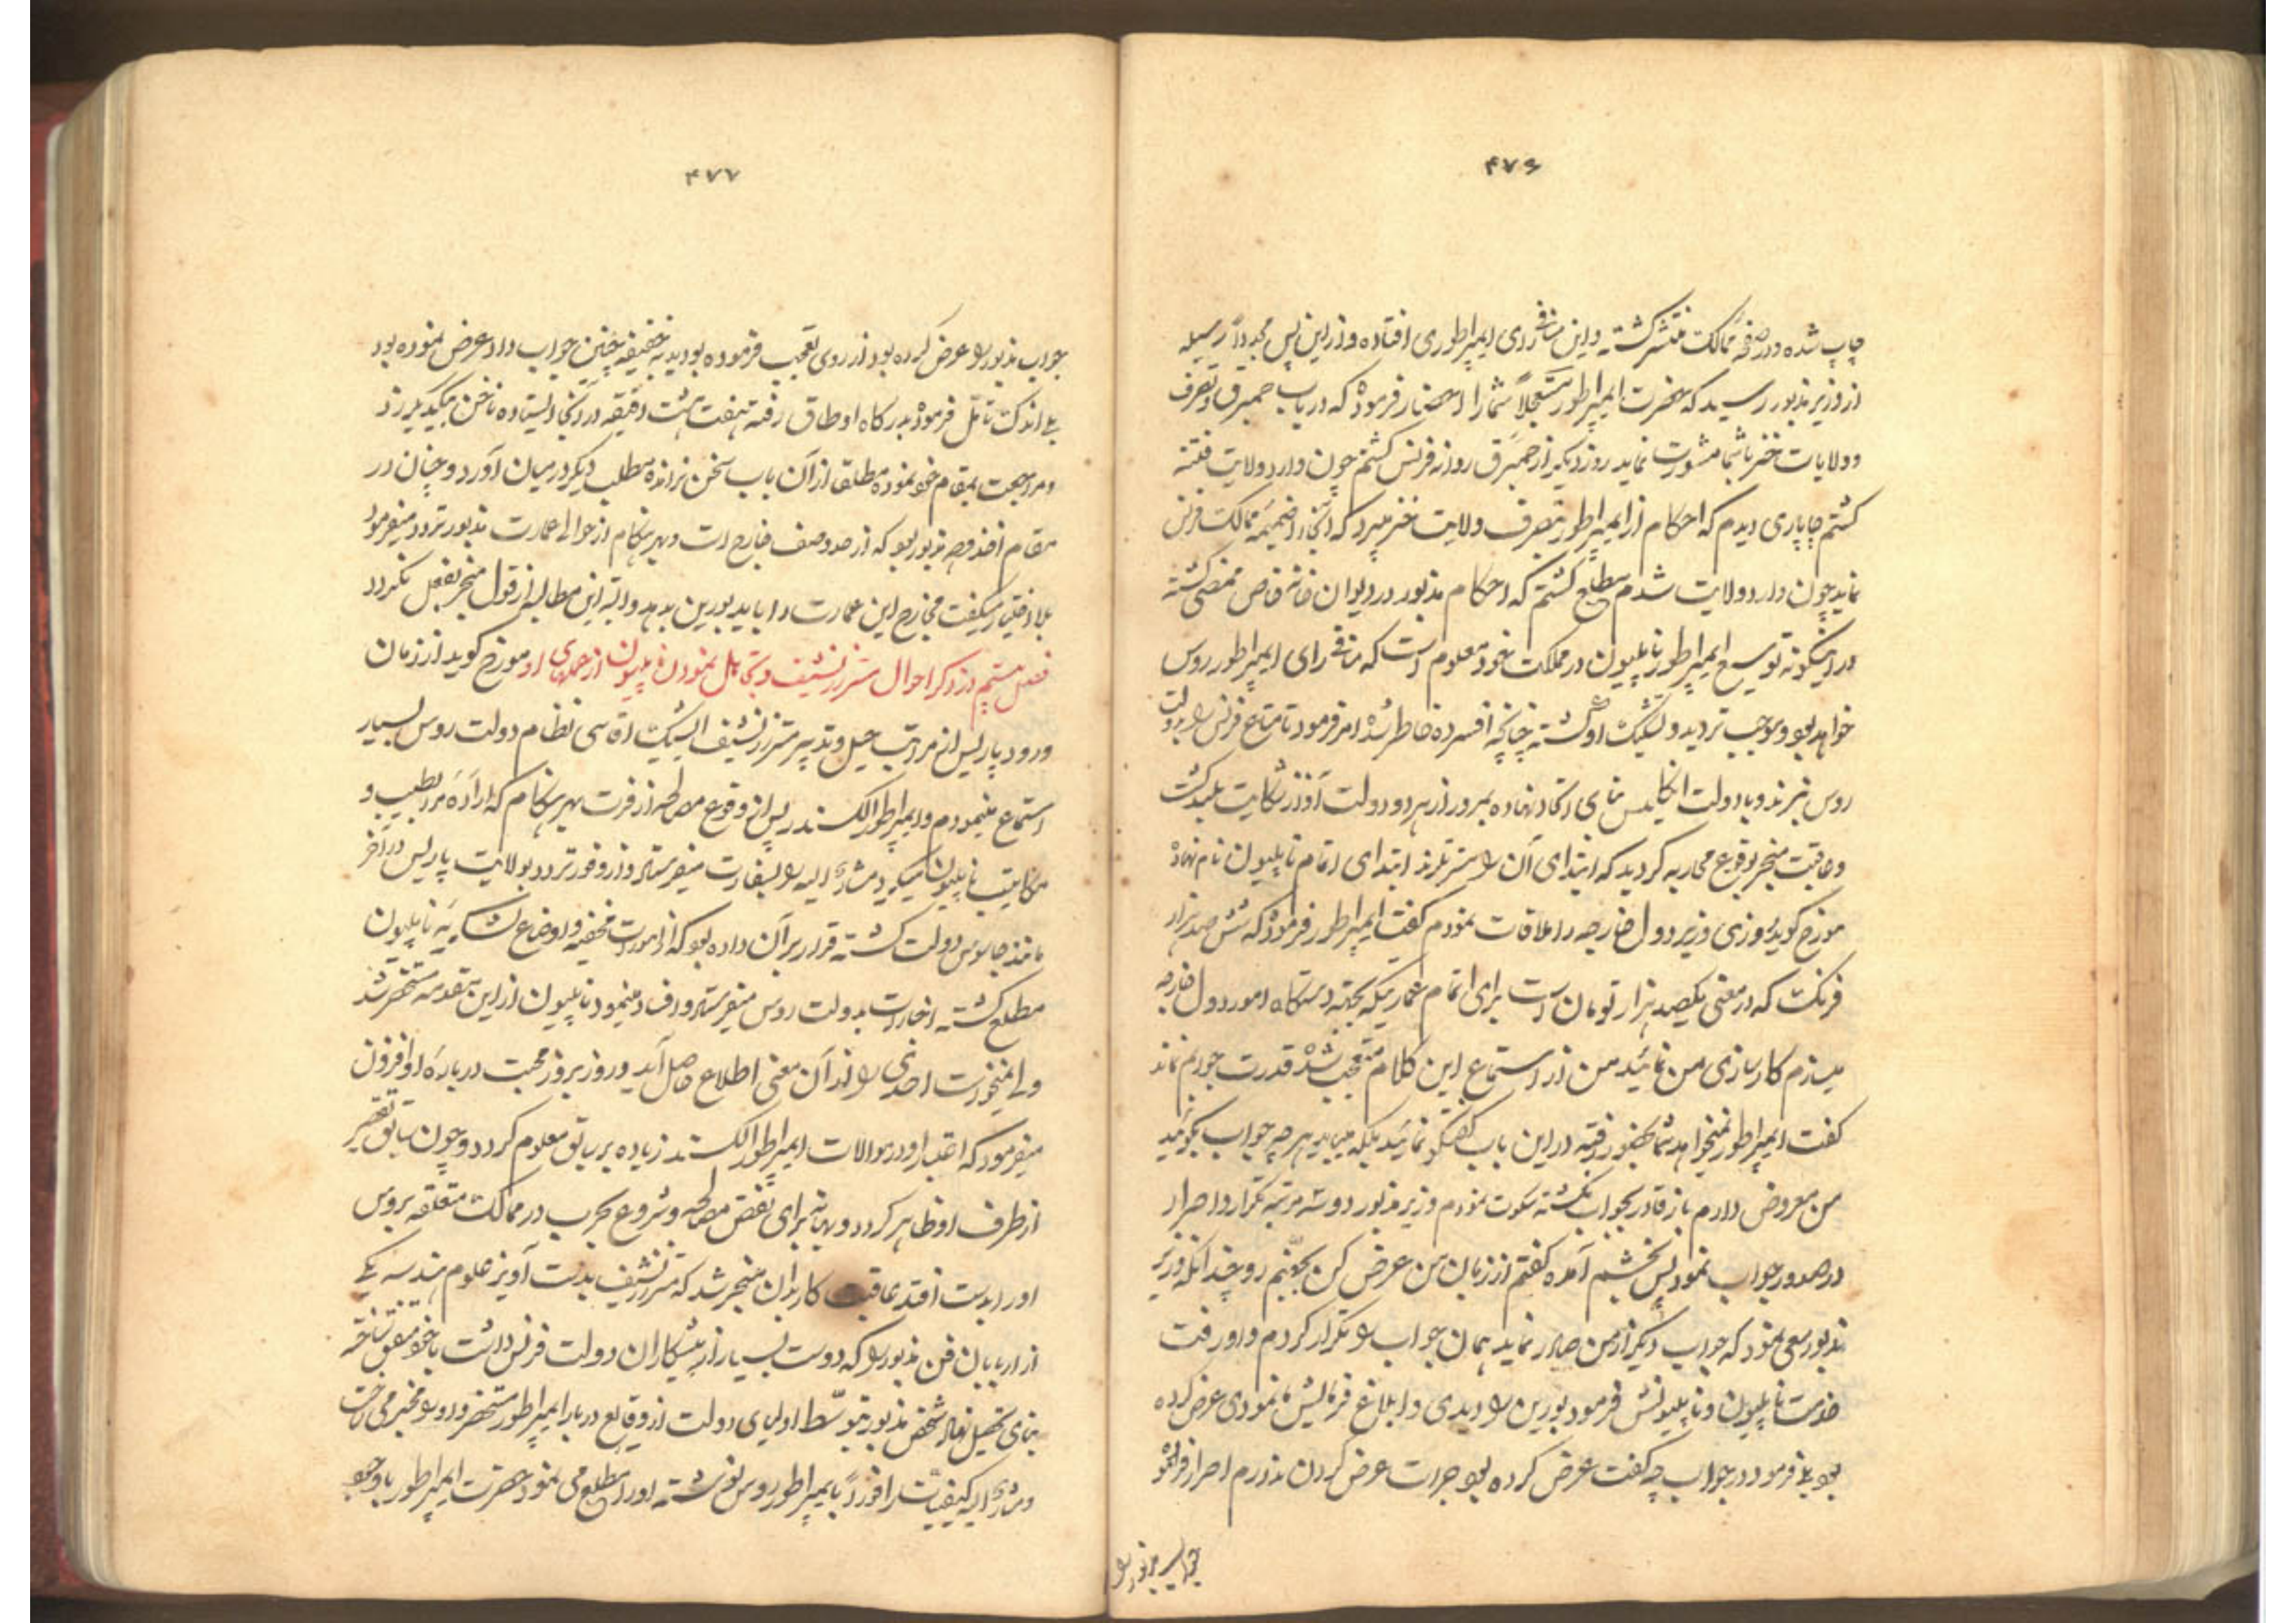 ۴۷۶
چاپ شده و در صفحهٔ ممالک منتشر گشت و این منافی رای ایمپراطوری افتاده و از این پس مجدداً رسیله
از وزیر مذبور رسید که حضرت ایمپراطور مستعجلاً شما را احضار فرموده که در باب حمبرق و تصرف
و ولایات ختن با شما مشورت نماید روز دیگر از حمبرق روانه فرنس گشتم چون وارد ولایت
گشتم چاپاری دیدم که احکام از ایمپراطور بتصرف ولایت میبرد که آنجا را ضمیمه ممالک فرنس
نماید چون وارد ولایت شدم مطلع گشتم که احکام مذبور در دیوان خانه خاص ممضی گشته
در اینگونه توسیع ایمپراطور ناپلیون در مملکت خود معلوم است که منافی رای ایمپراطور روس
خواهد بود و موجب تردید و تشکیک او گشته چنانچه افسرده خاطر شده امر فرمود تا متاع فرنس را بدولت
روس نبرند و با دولت انگلیس بنای اتحاد نهاده بمرور از هر دو دولت آواز شکایت بلند گشت
و عاقبت منجر بوقوع محاربه گردید که ابتدای آن را ابتدای اتمام ناپلیون نام نهاده
مورخ گوید روزی وزیر دول خارجه را ملاقات نمودم گفت ایمپراطور فرموده که شش صد هزار
فرنک که در معنی یکصد هزار تومان است برای اتمام عماریکه بجهته دستگاه امور دول خارجه
میسازم کارسازی من نمائید من از استماع این کلام متعجب شده قدرت جوابم نماند
گفت ایمپراطور نمیخواهد شما بحضور رفته در این باب گفتگو نمائید بلکه میباید هر چه جواب بگوئید
من معروض دارم باز قادر بجواب نگشته سکوت نمودم وزیر مذبور دو سه مرتبه تکرار و اصرار
در صدور جواب نمود پس بخشم آمده گفتم از زبان من عرض کن بجهنم رو چندانکه وزیر
مذبور سعی نمود که جواب دیگر از من صادر نماید همان جواب را تکرار کردم و او رفت
خدمت ناپلیون و ناپلیونش فرمود بورین را دیدی و ابلاغ فرمایش ما نمودی عرض کرده
بود بلی فرمود در جواب چه گفت عرض کرده بود جرات عرض کردن ندارم اصرار فرموده
جواب مذبور را
۴۷۷
جواب مذبور را عرض کرده بود از روی تعجب فرموده بود بحقیقة چنین جواب داد عرض نموده بود
بلی اندک تامل فرموده بدرگاه اوطاق رفته هفت هشت دقیقه در آنجا ایستاده ناخن میگزید
و مراجعت بمقام خود نموده مطلقا از آن باب سخن نرانده مطلب دیگر در میان آورد و چنان در
مقام اخذ وجه مذبور بود که از حد وصف خارج است و هر هنگام از حوالی عمارت مذبور تردد میفرمود
بلا اختیار میگفت مخارج این عمارت را باید بورین بدهد و البته این مطالبه از قول منجر بفعل نگردد
فصل بیستم در ذکر احوال و تجاهل نمودن ناپلیون از او مورخ گوید از زمان
ورود پاریس از مراتب حیل و تدبیر نظام دولت روس بسیار
استماع مینمودم و ایمپراطور الکسندر پس از وقوع مصالحه از فرت بهر هنگام که اراده و
مکاتبت ناپلیون میکرد مشار الیه را بسفارت میفرستاد و از وفور تردد بولایت پاریس در آخر
مانند جاسوس دولت گشته قرار بر آن داده بود که از امورات مخفیه و اوضاع لشکریه ناپلیون
مطلع گشته اخبارات بدولت روس میفرستاد و افساد مینمود ناپلیون از این مقدمه مستحضر شد
ولی نمیخواست احدی را از آن معنی اطلاع حاصل آید و روز بروز محبت درباره او افزون
میفرمود که اعتبار او در موالات ایمپراطور الکسندر زیاده بر سابق معلوم گردد و چون تقصیر
از طرف او ظاهر گردد و بهانه برای نقض مصالحه و شروع بحرب در ممالک متعلقه بروس
او را بدست افتد عاقبت کار بدان منجر شد که بدست آویز علوم هندسه یکی
از اربابان فن مذبور را که دوست بسیار از پیشکاران دولت فرنس داشت با خود متفق ساخته
بنای تحصیل نهاد شخص مذبور بتوسط اولیای دولت از وقایع دربار ایمپراطور مستحضر و او را مخبر می ساخت
و مشار الیه کیفیات را فوراً بایمپراطور روس نوشته او را مطلع می نمود حضرت ایمپراطور با وجود